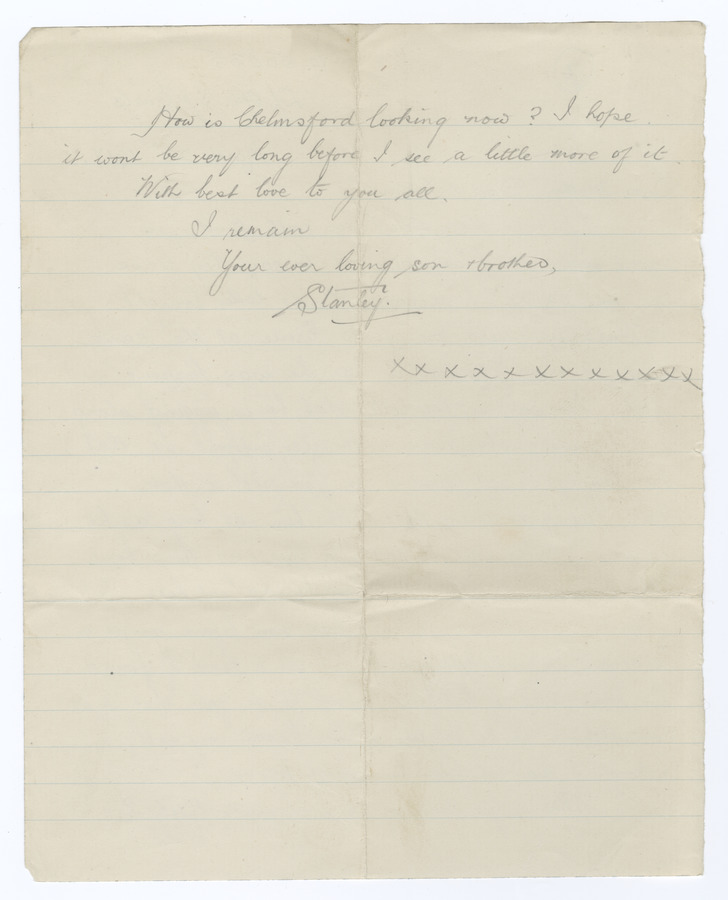 How is Chelmsford looking now? I hope
it wont be very long before I see a little more of it.
With best love to you all.
I remain
Your ever loving son & brother,
Stanley.
x x x x x x x x x x x x